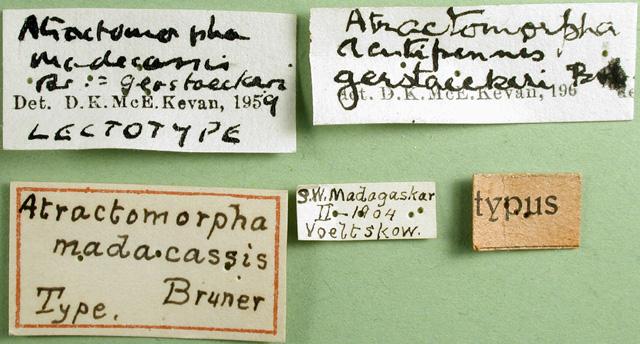 Atractomorpha
madecassis
Br := gerstaeckeri
Det. D.K. McE. Kevan, 1959
LECTOTYPE
Atractomorpha
acutipennis
gerstaeckeri
det. D.K. McE. Kevan, 196
Atractomorpha
madacassis
Bruner
Type.
S.W. Madagaskar
II-1904
Voeltskow.
typus